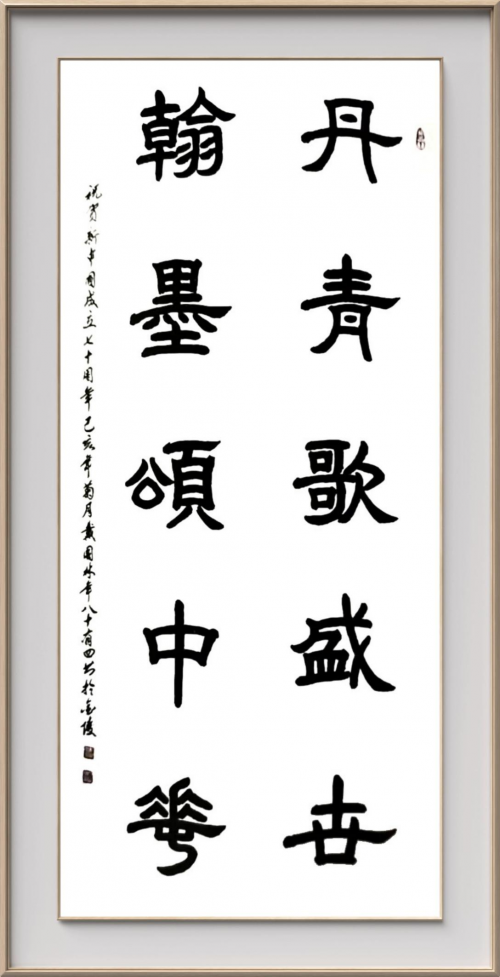 丹青歌盛世
翰墨頌中華
祝賀新中國成立七十周年己亥年菊月戴國林年八十有四書於金陵